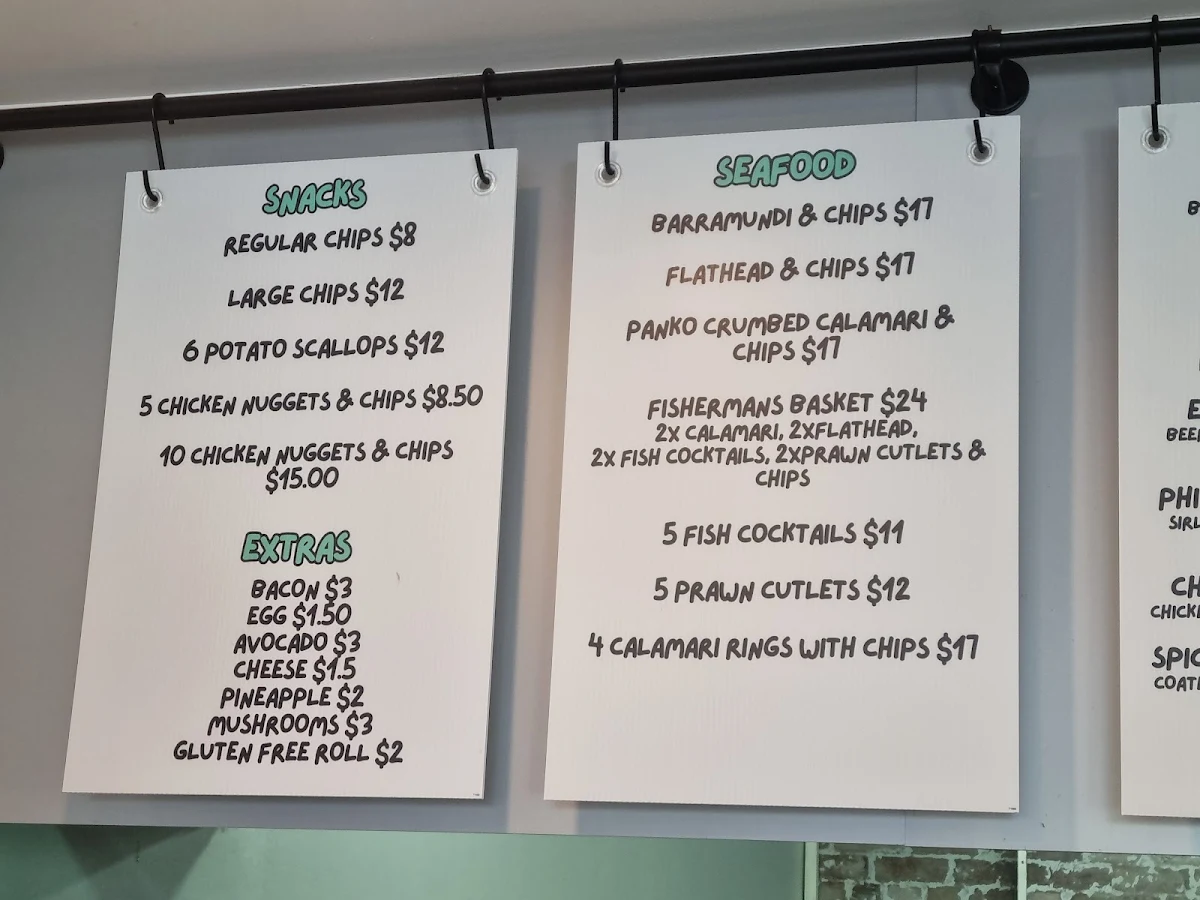 SNACKS
REGULAR CHIPS $8
LARGE CHIPS $12
6 POTATO SCALLOPS $12
5 CHICKEN NUGGETS & CHIPS $8.50
10 CHICKEN NUGGETS & CHIPS
$15.00
EXTRAS
BACON $3
EGG $1.50
AVOCADO $3
CHEESE $1.5
PINEAPPLE $2
MUSHROOMS $3
GLUTEN FREE ROLL $2
SEAFOOD
BARRAMUNDI & CHIPS $17
FLATHEAD & CHIPS $17
PANKO CRUMBED CALAMARI &
CHIPS $17
FISHERMANS BASKET $24
2X CALAMARI, 2XFLATHEAD,
2X FISH COCKTAILS, 2XPRAWN CUTLETS &
CHIPS
5 FISH COCKTAILS $11
5 PRAWN CUTLETS $12
4 CALAMARI RINGS WITH CHIPS $17